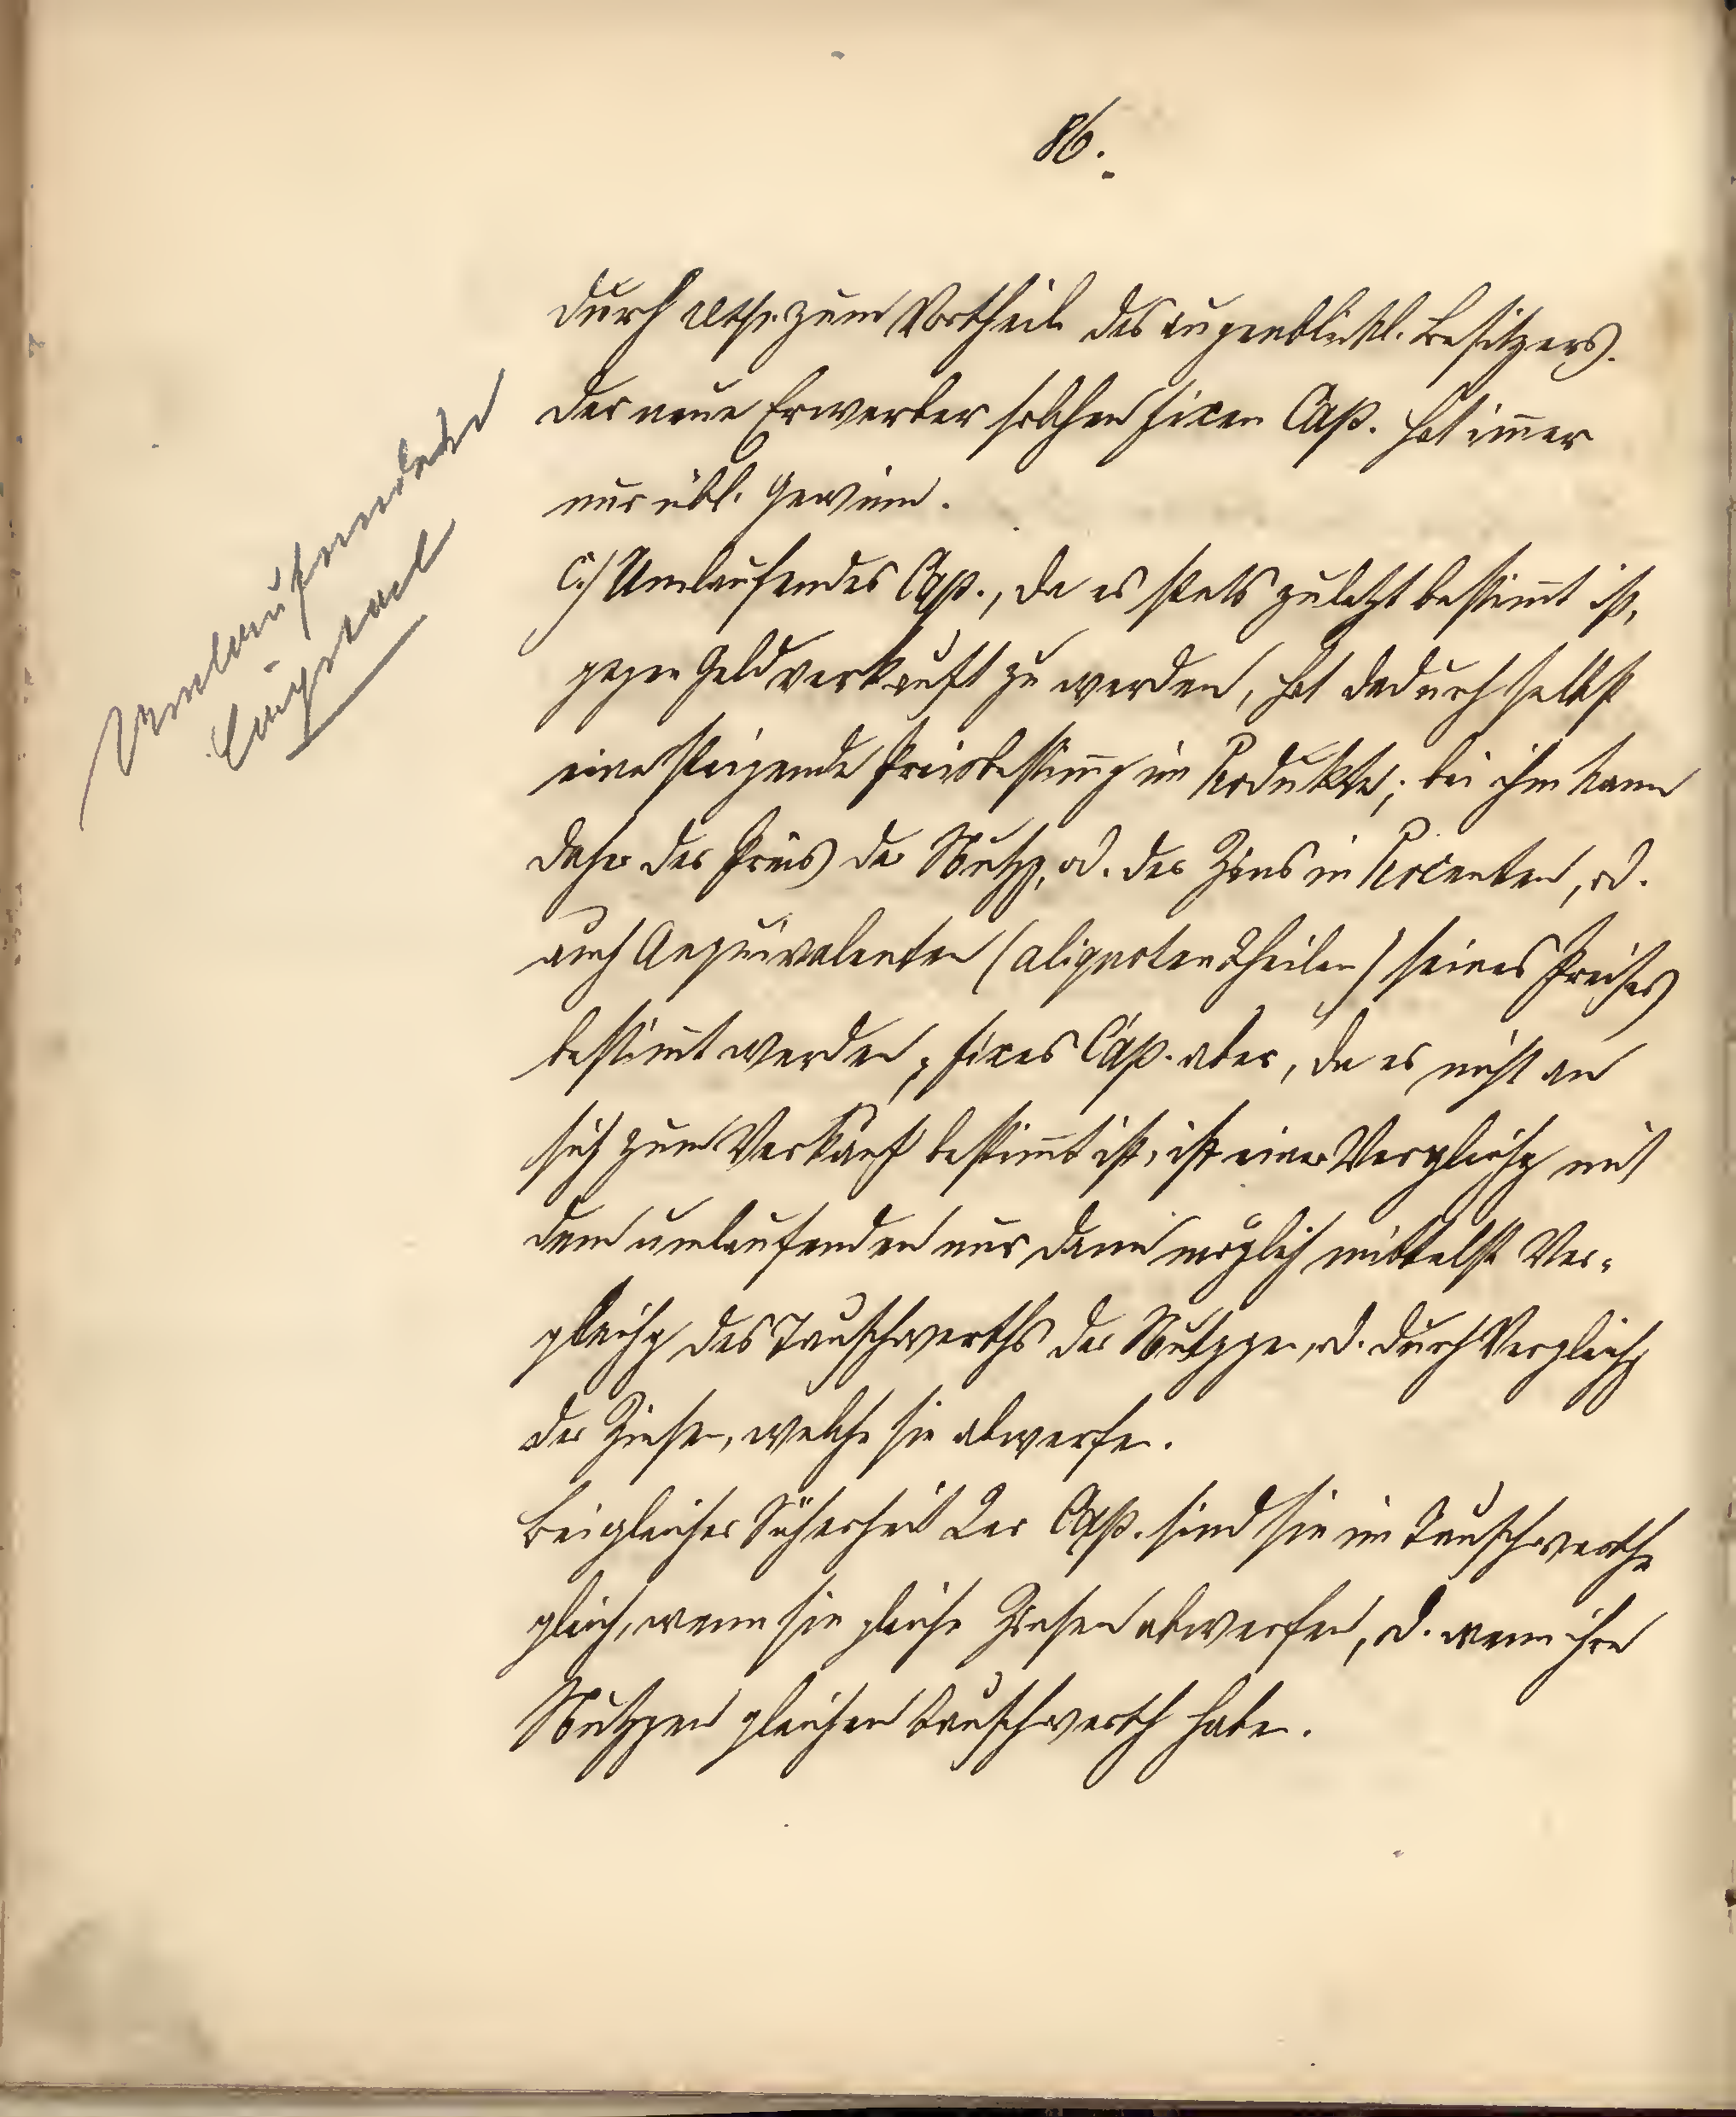 86.
durch zum Vortheil des augenblickl. Besitzers.
Der neue Erwerber solchen fixen Cap. hat im̄er
nur übl. Gewinn.
Umlaufendes
Capital
C.) Umlaufendes Cap., da es stets zuletzt bestim̄t ist,
gegen Geld verkauft zu werden, hat dadurch selbst
eine steigende Preisbestim̄g im Produkte; bei ihm kann
daher der Preis der Nutzg, od. der Zins in Procenten, od.
auch Aequivalenten (aliquoten Theilen) seines Preises
bestim̄t werden; fixes Cap. aber, da es nicht an
sich zum Verkauf bestim̄t ist, ist eine Vergleichg mit
dem umlaufenden nur dann möglich mittelst Ver-
gleichg des Tauschwerths der Nutzgen, od. durch Vergleichg
der Zinsen, welche sie abwerfen.
Bei gleicher Sicherheit der Cap. sind sie im Tauschwerthe
gleich, wenn sie gleiche Zinsen abwerfen, d. wenn ihre
Nutzgen gleichen Tauschwerth haben.